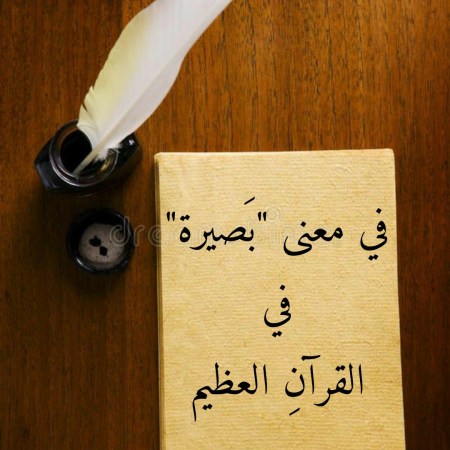 في معنى "بَصيرة"
في
القرآنِ العظيم